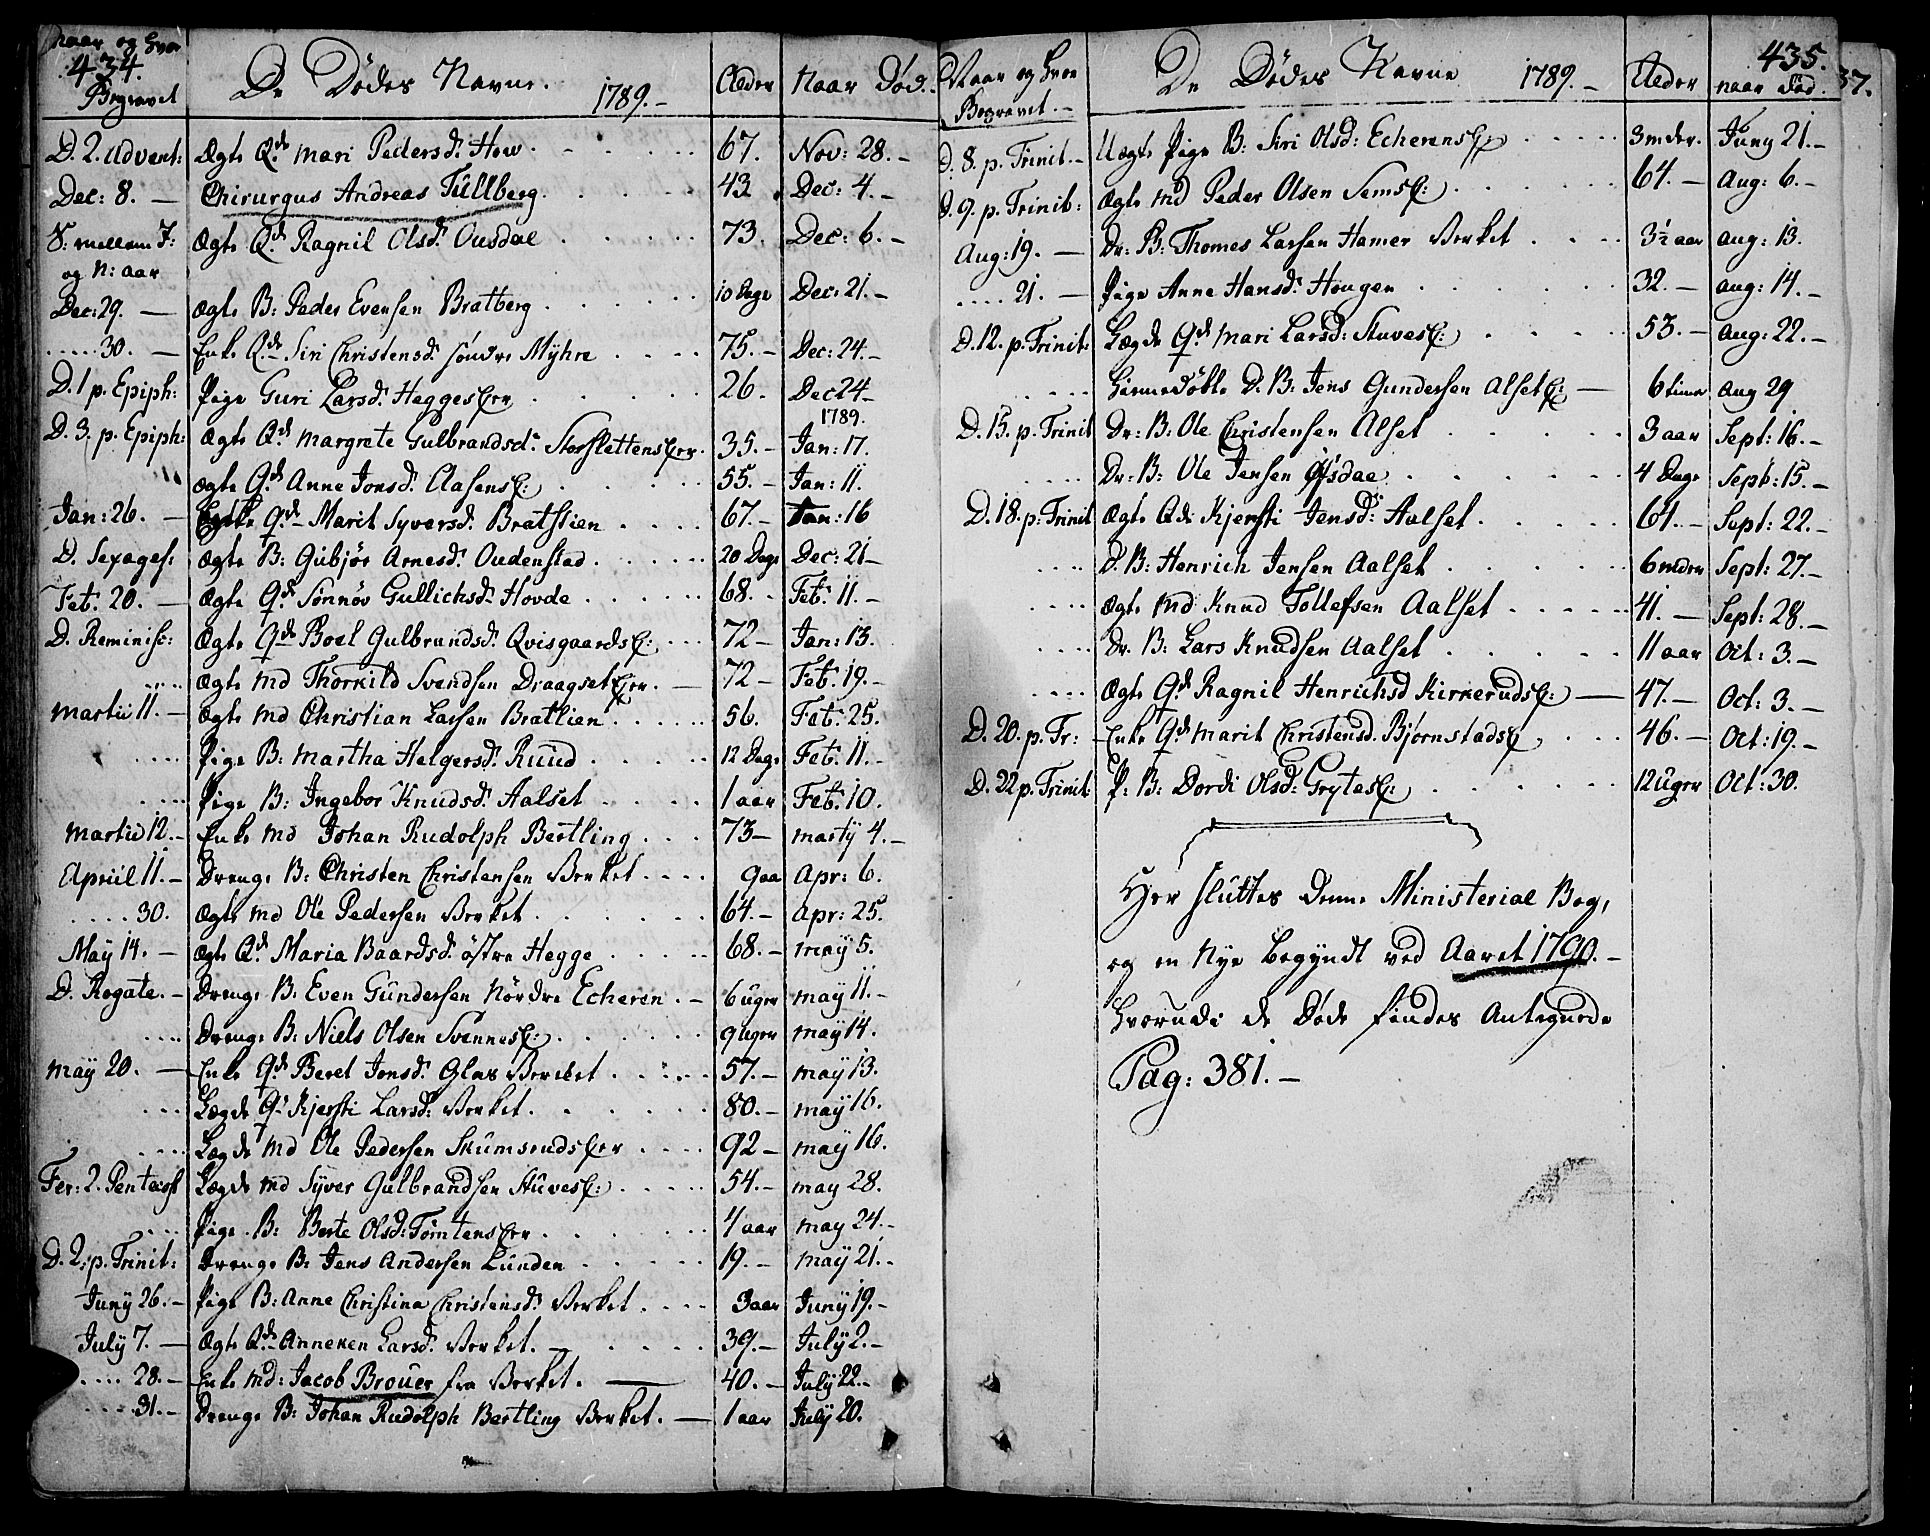 Naar og hvor
434.
Begravet
De Dødes Navne. 1789.-
Alder
Naar Død.
D. 2. Advent: Ægte Qde Mari Pedersd: How 67. Nov: 28.-
Dec: 8. - Chirurgus Andreas Tüllberg 43 Dec: 4.-
S: mellem J: Ægte Qde Ragnil Olsd: Ousdal 73. Dec: 6.-
og N: aar
Dec: 29. - Ægte B: Peder Evensen Bratberg 10 Dage Dec: 21.-
30. - Enke Qde Siri Christensd: søndre Mÿhre 75.- Dec: 24.-
D. 1 p. Epiph: Pige Guri Larsd: Hegges 26. Dec 24-
1789.
D. 3. p. Epiph: Ægte Qde Margrete Gulbrandsd: Storslettens 35.- Jan: 17.
Ægte Qde Anne Jonsd: Clasens 55.- Jan: 11.
Jan: 26. - Enke Qde Marit Syversd: Bratlien 67.- Jan: 16
D. Sexages: Ægte B: Gubjør Arnesd: Oudenstad 20 Dage Dec: 21-
Feb: 20. - Ægte Qde Sønnøv Gullichsd: Hovde 68.- Feb: 11.-
D. Reminisc: Ægte Qde Boel Gulbrandsd: Qvisgaards 72- Jan: 13.
Ægte Md Thorkild Svendsen Draagset 72- Feb: 19.-
Martii 11.- Ægte Md Christian Larsen Bratlien 56. Feb: 25.
Pige B: Martha Helgersd: Ruud 12 Dage Feb: 11.-
Pige B: Ingebor Knudsd: Aalset 1 aar Feb: 10.
Martii 12.- Enke Md Johan Rudolph Bertling 73- Martÿ 4.-
Apriil 11.- Drenge B: Christen Christensen Verket 9 aa Apr: 6.
30. Ægte Md Ole Pedersen Verket 64.- Apr: 25.
May 14. - Ægte Qde Maria Baardsd: østre Hegge 68.- Maÿ 5.
D. Rogate.- Drenge B: Even Gundersen Nordre Echeren 6 uger Maÿ 11.-
Drenge B: Niels Olsen Svennes 9 Uger Maÿ 14.
Maÿ 20. - Enke Qde Beret Jonsd: Glas Verket 57.- Maÿ 13.
Lægde Qde Kjersti Larsd: Verket 80.- Maÿ 16.
Lægde Md Ole Pedersen Skumsruds 92- Maÿ 16.
Fer: 2. Pentecost Lægde Md Syver Gulbrandsen Stüves 54.- May 28.
Pige B: Berte Olsd: Tomtens 4 aar May 24.-
D. 2. p. Trinit: Drenge B: Jens Andersen Lunden 19.- Maÿ 21.-
Junÿ 26.- Pige B: Anne Christina Christensd: Verket 3 aar Junÿ 19.-
July 7. - Ægte Qde Anneken Larsd: Verket. 39.- July 2.-
28.- Enke Md: Jacob Brouer fra Verket. 40.- July 22.-
31.- Drenge B: Johan Rudolph Bertling Verket. 1 aar July 20.
Naar og hvor
Begravet.-
De Dødes Navne 1789.-
Alder
435.
naar Død.
37.
D. 8. p. Trinit.- Uægte Pige B: Siri Olsd: Echerens 3 mdr. Juny 21.-
D. 9. p. Trinit: Ægte Md Peder Olsen Sems 64.- Aug: 6.-
Aug: 19. - Dr: B: Thomes Larsen Hamer Verket 3½ aar Aug: 13.
21. - Pige Anne Hansd: Hougen 32.- Aug: 14.-
D. 12. p. Trinit: Lægde Qde Mari Larsd: Stuves 53.- Aug: 22.-
Hiemedøbte D. B: Jens Gundersen Alset 6 timer Aug 29
D. 15. p. Trinit Dr: B: Ole Christensen Alset 3 aar Sept: 16.-
Dr: B: Ole Jensen 4 Dage Sept: 15.-
D. 18. p. Trinit Ægte Qde Kjersti Jensd: Aalset. 61.- Sept: 22.-
D. B: Henrich Jensen Aalset 6 mdr Sept: 27.-
Ægte Md Knud Tollefsen Aalset 41.- Sept: 28.-
Dr. B: Lars Knudsen Aalset 11 aar Oct: 3.-
Ægte Qde Ragnil Henrichsd Kirkeruds 47.- Oct: 3.-
D. 20. p. Tr: Enke Qde Marit Christensd. Bjørnstads 46.- Oct: 19.-
D. 22 p. Trinit: P: B: Dordi Olsd: Grytes 12 Uger Oct: 30.
Her sluttes denne Ministerial Bog,
og en Nye begyndt ved Aaret 1790.-
hvorudi de Døde findes Antegnede
Pag: 381.-